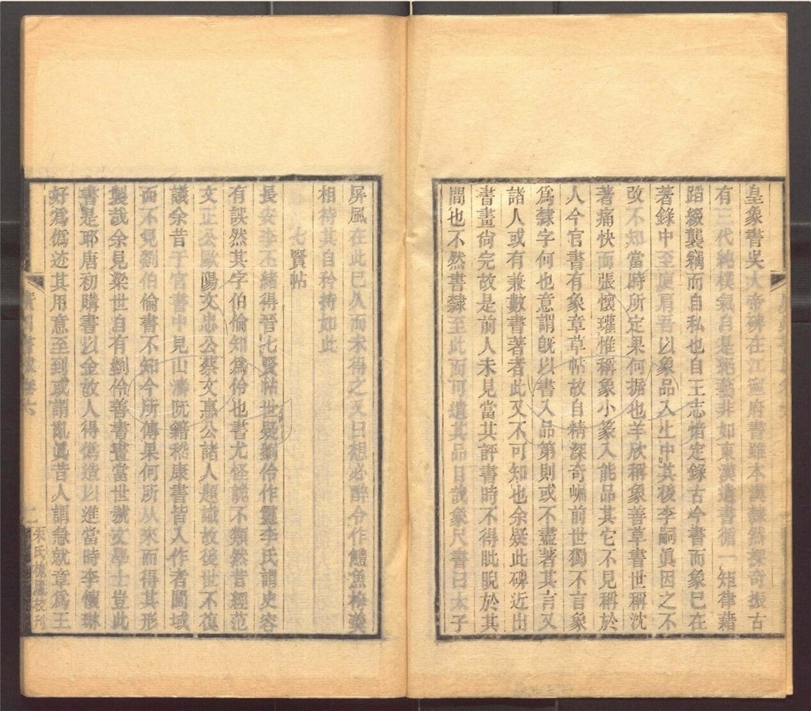 皇象書吳大帝碑在江寧府書雖本漢隸然探奇振古
有三代純樸氣自是絕藝非如東漢遺書循一矩律藉
蹈綴襲竊而自私也自王志愔定錄古今書而象已在
著錄中至庾肩吾以象品入上中其後李嗣真因之不
改不知當時所定果何據也羊欣稱象善草書世稱沈
著痛快而張懷瓘惟稱象小篆入能品其它不見稱於
人今官書有象章草帖故自精深奇崛前世獨不言象
為隸字何也意謂旣以書入品第則或不盡著其言又
諸人或有兼數書著者此又不可知也余疑此碑近出
書畫尙完故是前人未見當其評書時不得眦睨於其
間也不然書隸至此而可遺其品目哉象尺書曰太子
屏風在此已久而未得之又曰想必醉令作鱧魚梅羹
相待其自矜持如此
七賢帖
長安李丕緒得晉七賢帖世疑劉伶作靈李氏謂史容
有誤然其字伯倫知為伶也書尤怪譎不類然昔經范
文正公歐陽文忠公蔡文惠公諸人題識故後世不復
議余昔于官書中見山濤阮籍嵇康書皆入作者閫域
而不見劉伯倫書不知今所傳果何所从來而得其形
製哉余見梁世自有劉伶善書畫當世號文學士豈此
書是耶唐初購書以金故人得偽造以進當時李懷琳
好為偽迹其用意至到或謂亂眞昔人謂急就章為王
廣川書跋卷六
二
朱氏槐廬校刊